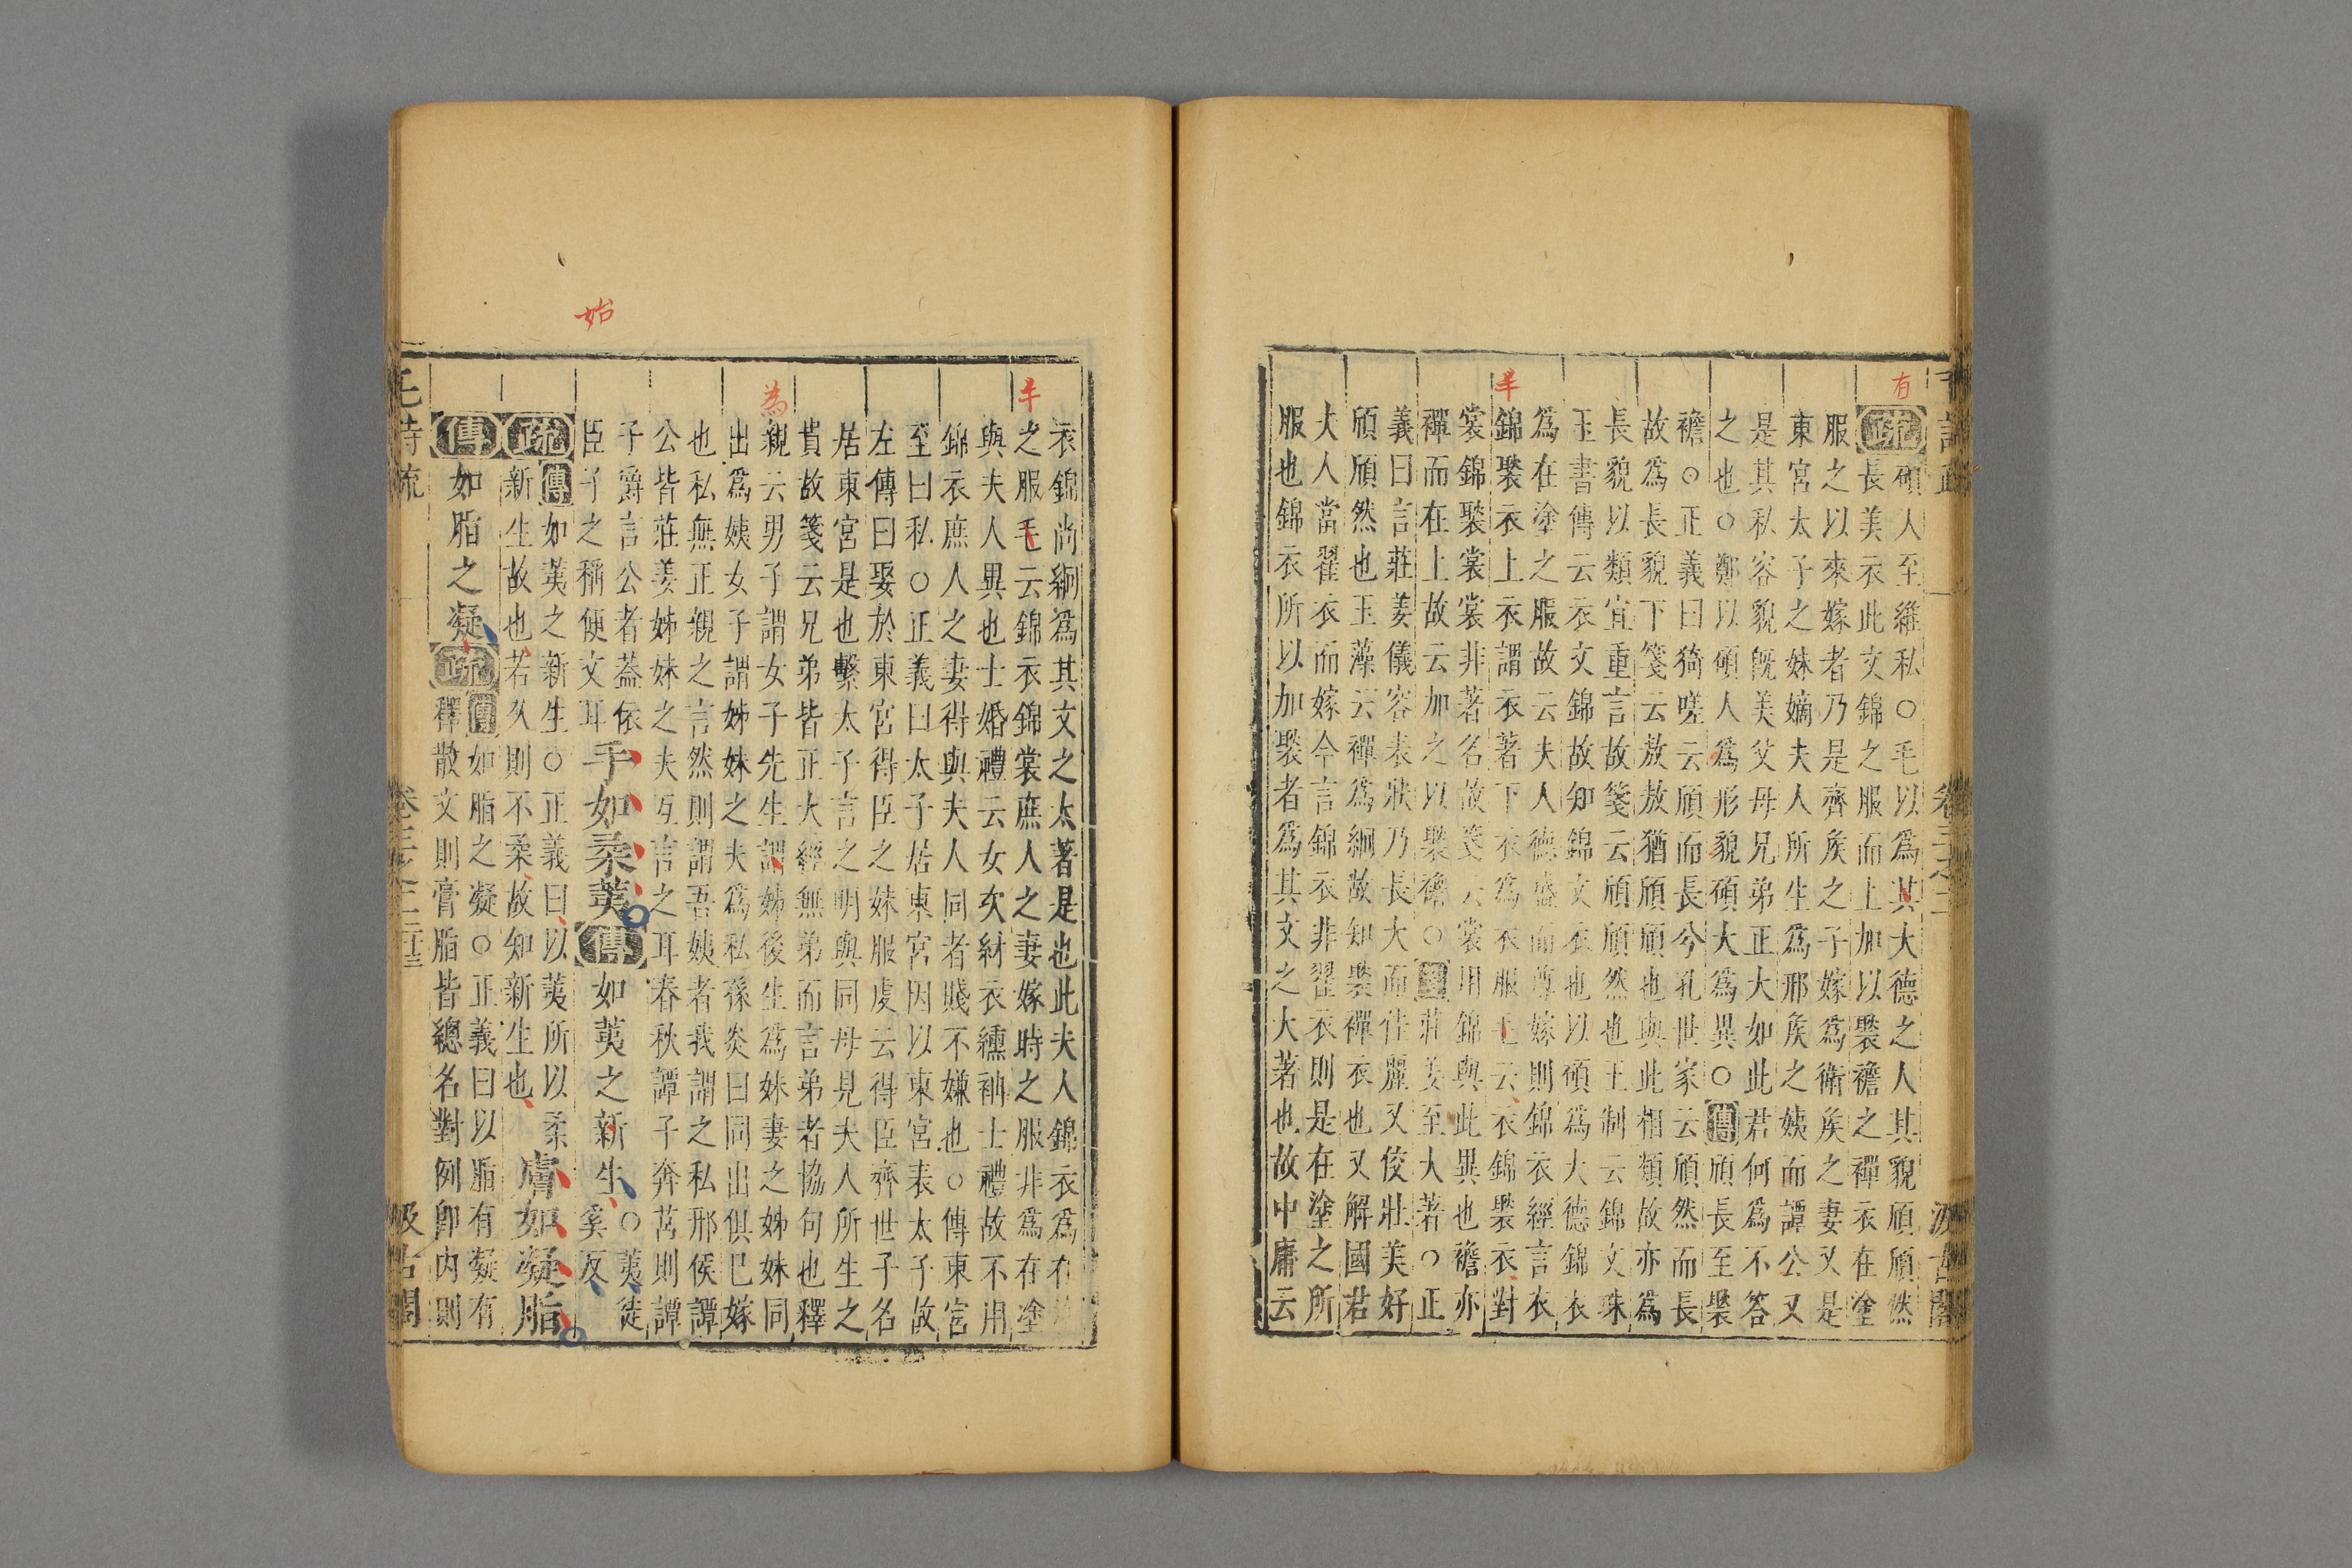 有
半
疏碩人至維私○毛以爲其大德之人其貌頎頎然
長美衣此文錦之服而上加以褧襜之襌衣在塗
服之以來嫁者乃是齊矦之子嫁爲衛矦之妻又是
東宮太子之妹嫡夫人所生爲邢矦之姨而譚公又
是其私容貌旣美父母兄弟正大如此君何爲不答
之也○鄭以碩人爲形貌碩大爲異○傳頎長至褧
襜○正義曰猗嗟云頎而長兮孔世家云頎然而長
故爲長貌下箋云敖敖猶頎頎也與此相類故亦爲
長貌以類宜重言故箋云頎頎然也王制云錦文珠
玉書傳云衣文錦故知錦文衣也以碩爲大德錦衣
爲在塗之服故云夫人德盛而尊嫁則錦衣經言衣
錦褧衣上衣謂衣著下衣爲衣服毛云衣錦褧衣對
裳錦褧裳裳非著名故箋云裳用錦與此異也襜亦
襌而在上故云加之以褧襜○箋莊姜至大著○正
義曰言莊姜儀容表狀乃長大而佳麗又佼壯美好
頎頎然也玉藻云襌爲絅故知褧襌衣也又解國君
大人當翟衣而嫁今言錦衣非翟衣則是在塗之所
服也錦衣所以加褧者爲其文之大著也故中庸云
始
半
為
衣錦尚絅爲其文之太著是也此夫人錦衣爲在
之服毛云錦衣錦裳庶人之妻嫁時之服非爲在塗
與夫人異也士婚禮云女次紂衣纁袡士禮故不用
錦衣庶人之妻得與夫人同者賤不嫌也○傳東宮
至曰私○正義曰太子居東宮因以東宮表太子故
左傳曰娶於東宮得臣之妹服虔云得臣齊世子名
居東宮是也繫太子言之明與同母見夫人所生之
貴故箋云兄弟皆正大經無弟而言弟者協句也釋
親云男子謂女子先生謂姊後生爲妹妻之姊妹同
出爲姨女子謂姊妹之夫爲私孫炎曰同出俱已嫁
也私無正親之言然則謂吾姨者我謂之私邢侯譚
公皆莊姜姊妹之夫互言之耳春秋譚子奔莒則譚
子爵言公者葢依
臣子之稱便文耳
手如柔荑傳如荑之新生○荑徒
奚反
疏傳如荑之新生○正義曰以荑所以柔
新生故也若久則不柔故知新生也
膚如凝脂
傳如脂之凝疏傳如脂之凝○正義曰以脂有凝有
釋散文則膏脂皆總名對例卽內則
毛詩疏 卷三之二 汲古閣